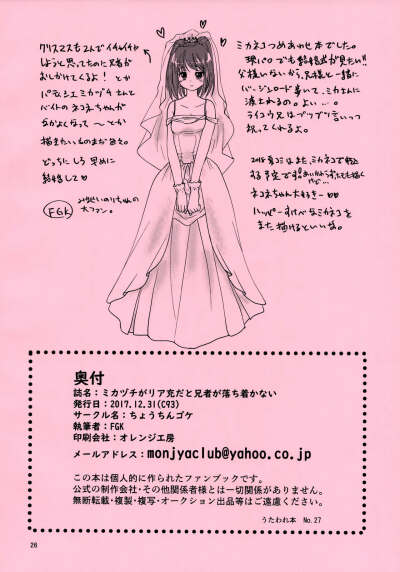 ミカネコつめあわせ本でした。
現パロでも結婚式が見たい!!
父様いないから、兄様と一緒に
バージンロード歩いて、ミカさんに
渡されるの。よい…。
ライコウ兄はブツブツ言いつつ
祝ってくれるよ。
ネコネちゃん大好きー♡♡
ハッピーすけべなミカネコを
また描けるといいな。
クリスマスも2人でイチャイチャ
しようと思ってたのに兄者が
おしかけてくるよ！とか
パティシエミカヅチさんと
バイトのネコネちゃんが
なかよくなって～とか
描きたいものはまだある。
どっちにしろ早めに
結婚して♡
FGK
大ファン。
奥付
誌名：ミカヅチがリア充だと兄者が落ち着かない
発行日：2017.12.31(C93)
サークル名：ちょうちんゴケ
執筆者：FGK
印刷会社：オレンジ工房
メールアドレス：monjyaclub@yahoo.co.jp
この本は個人的に作られたファンブックです。
公式の制作会社・その他関係者様とは一切関係がありません。
無断転載・複製・複写・オークション出品等はご遠慮ください。
うたわれ本　No.27
26